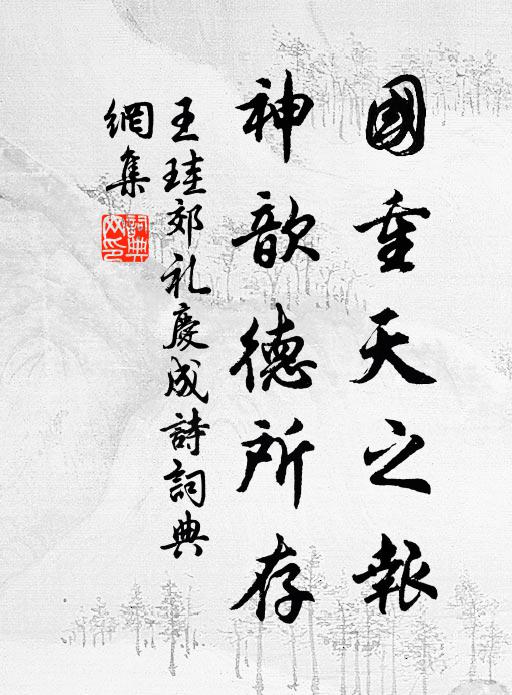 國重天之報
神歆德所存
王珪郊礼慶成詩詞典
網集
詞典網印